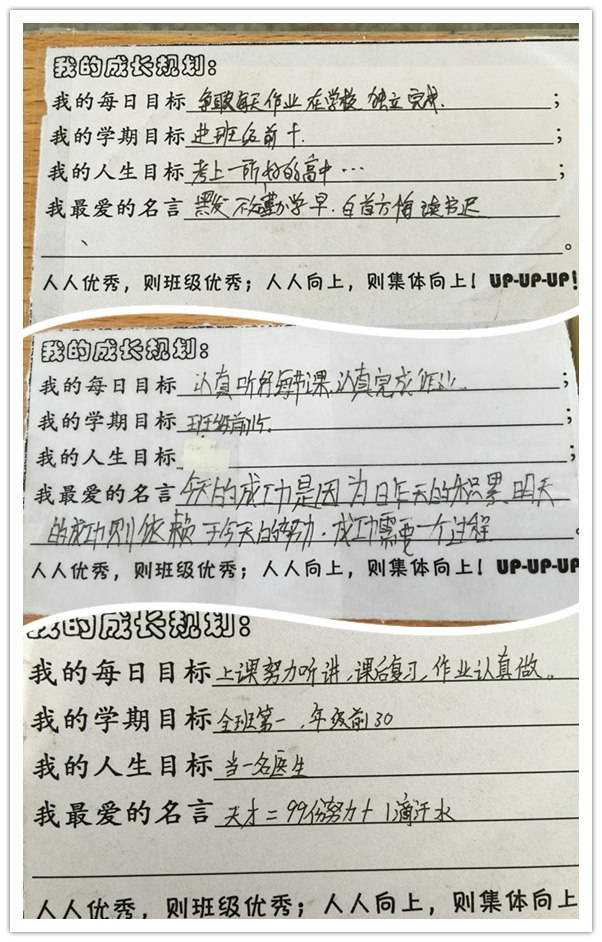 我的成长规划：
我的每日目标 争取每天作业在学校独立完成.；
我的学期目标 进班级前十.；
我的人生目标 考上一所好的高中…；
我最爱的名言 黑发不知勤学早.白首方悔读书迟
、。
人人优秀，则班级优秀；人人向上，则集体向上！UP-UP-UP!
我的成长规划：
我的每日目标 认真听好每节课.认真完成作业.；
我的学期目标 班级前15.；
我的人生目标；
我最爱的名言 今天的成功是因为昨天的积累,明天
的成功则依赖于今天的努力.成功需要一个过程。
人人优秀，则班级优秀；人人向上，则集体向上！UP-UP-UP
我的成长规划：
我的每日目标 上课努力听讲、课后复习、作业认真做。
我的学期目标 全班第一、年级前30
我的人生目标 当一名医生
我最爱的名言 天才＝99份努力＋1滴汗水
人人优秀，则班级优秀；人人向上，则集体向上